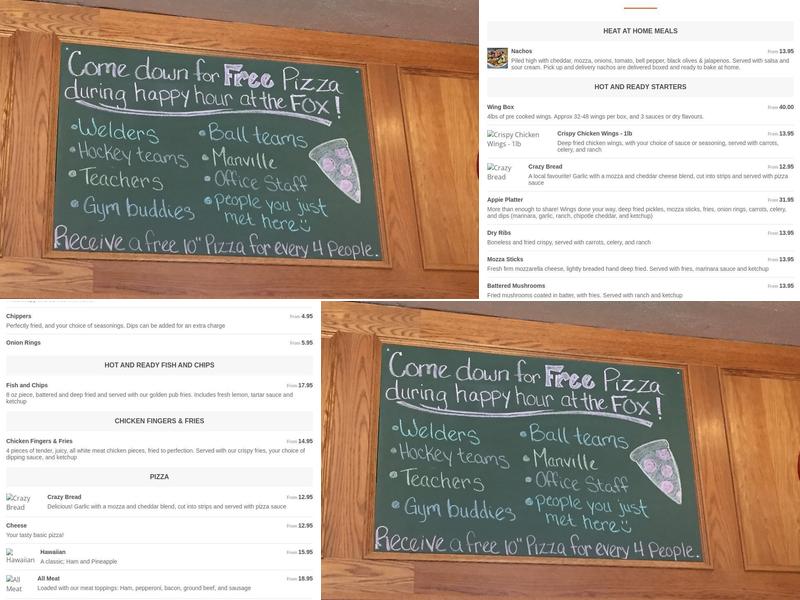 Come down for Free Pizza
during happy hour at the FOX!
• Welders
• Hockey teams
• Teachers
• Gym buddies
• Ball teams
• Manville
• Office Staff
• people you just
met here
Receive a free 10" Pizza for every 4 People.
HEAT AT HOME MEALS
Nachos From 13.95
Piled high with cheddar, mozza, onions, tomato, bell pepper, black olives & jalapenos. Served with salsa and
sour cream. Pick up and delivery nachos are delivered boxed and ready to bake at home.
HOT AND READY STARTERS
Wing Box From 40.00
4lbs of pre cooked wings. Approx 32-48 wings per box, and 3 sauces or dry flavours.
Crispy Chicken
Wings - 1lb
Crispy Chicken Wings - 1lb From 13.95
Deep fried chicken wings, with your choice of sauce or seasoning, served with carrots,
celery, and ranch
Crazy
Bread
Crazy Bread From 12.95
A local favourite! Garlic with a mozza and cheddar cheese blend, cut into strips and served with pizza
sauce
Appie Platter From 31.95
More than enough to share! Wings done your way, deep fried pickles, mozza sticks, fries, onion rings, carrots, celery,
and dips (marinara, garlic, ranch, chipotle cheddar, and ketchup)
Dry Ribs From 13.95
Boneless and fried crispy, served with carrots, celery, and ranch
Mozza Sticks From 13.95
Fresh firm mozzarella cheese, lightly breaded hand deep fried. Served with fries, marinara sauce and ketchup
Battered Mushrooms From 13.95
Fried mushrooms coated in batter, with fries. Served with ranch and ketchup
Chippers From 4.95
Perfectly fried, and your choice of seasonings. Dips can be added for an extra charge
Onion Rings From 5.95
HOT AND READY FISH AND CHIPS
Fish and Chips From 17.95
8 oz piece, battered and deep fried and served with our golden pub fries. Includes fresh lemon, tartar sauce and
ketchup
CHICKEN FINGERS & FRIES
Chicken Fingers & Fries From 14.95
4 pieces of tender, juicy, all white meat chicken pieces, fried to perfection. Served with our crispy fries, your choice of
dipping sauce, and ketchup
PIZZA
Crazy
Bread
Crazy Bread From 12.95
Delicious! Garlic with a mozza and cheddar blend, cut into strips and served with pizza sauce
Cheese From 12.95
Your tasty basic pizza!
Hawaiian
Hawaiian From 15.95
A classic; Ham and Pineapple
All
Meat
All Meat From 18.95
Loaded with our meat toppings: Ham, pepperoni, bacon, ground beef, and sausage
Come down for Free Pizza
during happy hour at the FOX!
• Welders
• Hockey teams
• Teachers
• Gym buddies
• Ball teams
• Manville
• Office Staff
• people you just
met here
Receive a free 10" Pizza for every 4 People.